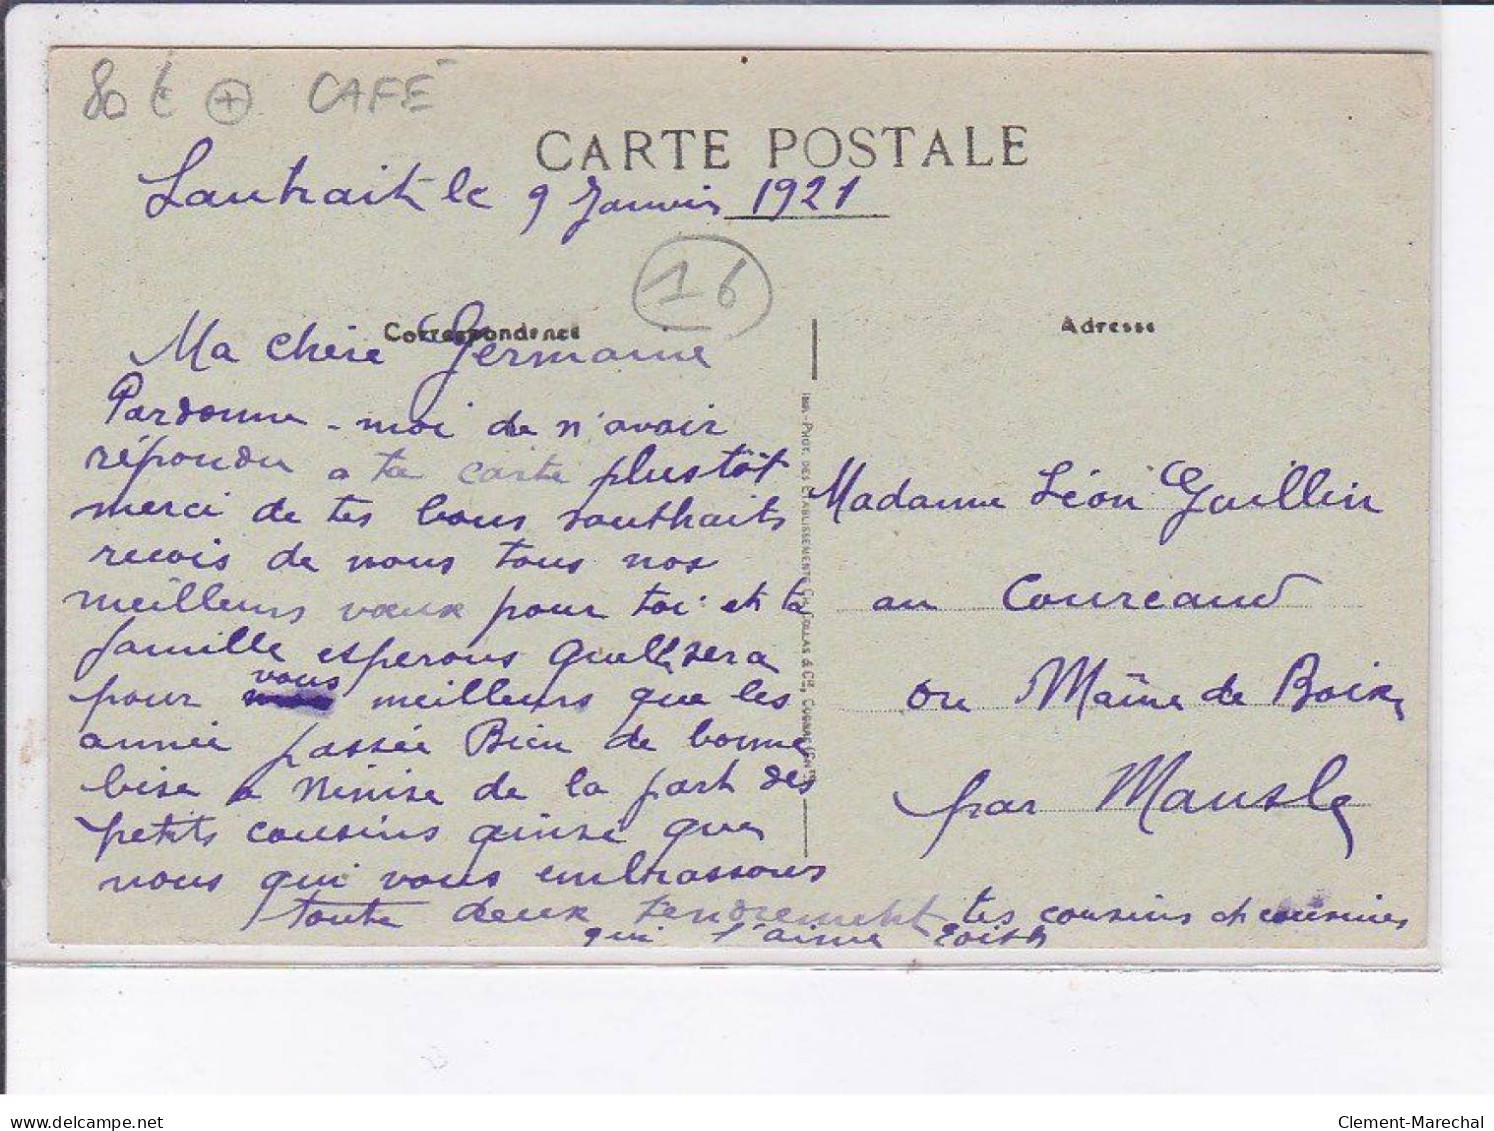 80 € + CAFÉ
CARTE POSTALE
Lautrait le 9 Janvier 1921
16
Correspondence
Adresse
Ma chère Germaine
Pardonne-moi de n'avoir
répondu a ta carte plustôt
merci de tes bons southaits
recois de nous tous nos
meilleurs vœux pour toi et ta
famille esperons quell sera
pour vous meilleurs que les
année passée Bien de bonne
bise a Ninise de la part des
petits cousins ainse que
nous qui vous embrassons
toute deux tendrement tes cousins et cousines
qui t'aime
Madame Léon Guillin
au Coureaud
ou Maine de Boix
par Mansle
Imp.-Phot. des Etablissements Ch. Collas & Cie, Cognac
Clement-Marechal
delcampe.net